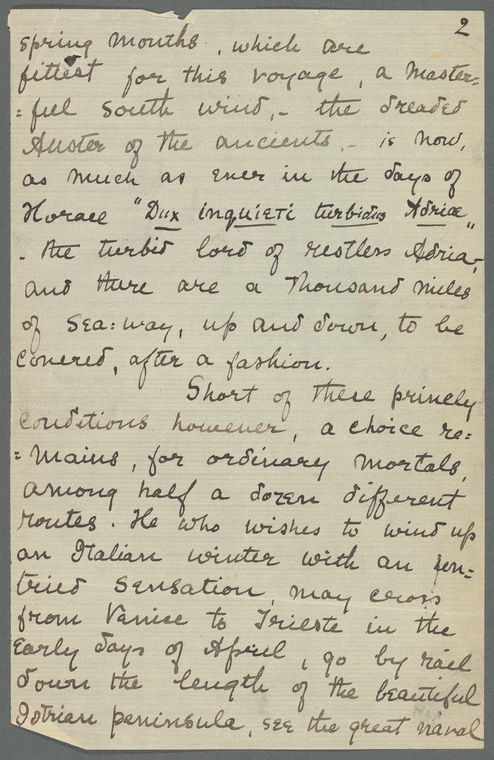 2
spring months, which are
fittest for this voyage, a master-
=ful south wind,- the dreaded
Auster of the ancients,- is now,
as much as ever in the days of
Horace "Dux inquieti turbidus Adriae"
- the turbid lord of restless Adria-;
and there are a thousand miles
of sea=way, up and down, to be
covered, after a fashion.
Short of these princely
conditions however, a choice re=
=mains, for ordinary mortals,
among half a dozen different
routes. He who wishes to wind up
an Italian winter with an un=
tried sensation, may cross
from Venice to Trieste in the
early days of April, go by rail
down the length of the beautiful
Istrian peninsula, see the great naval